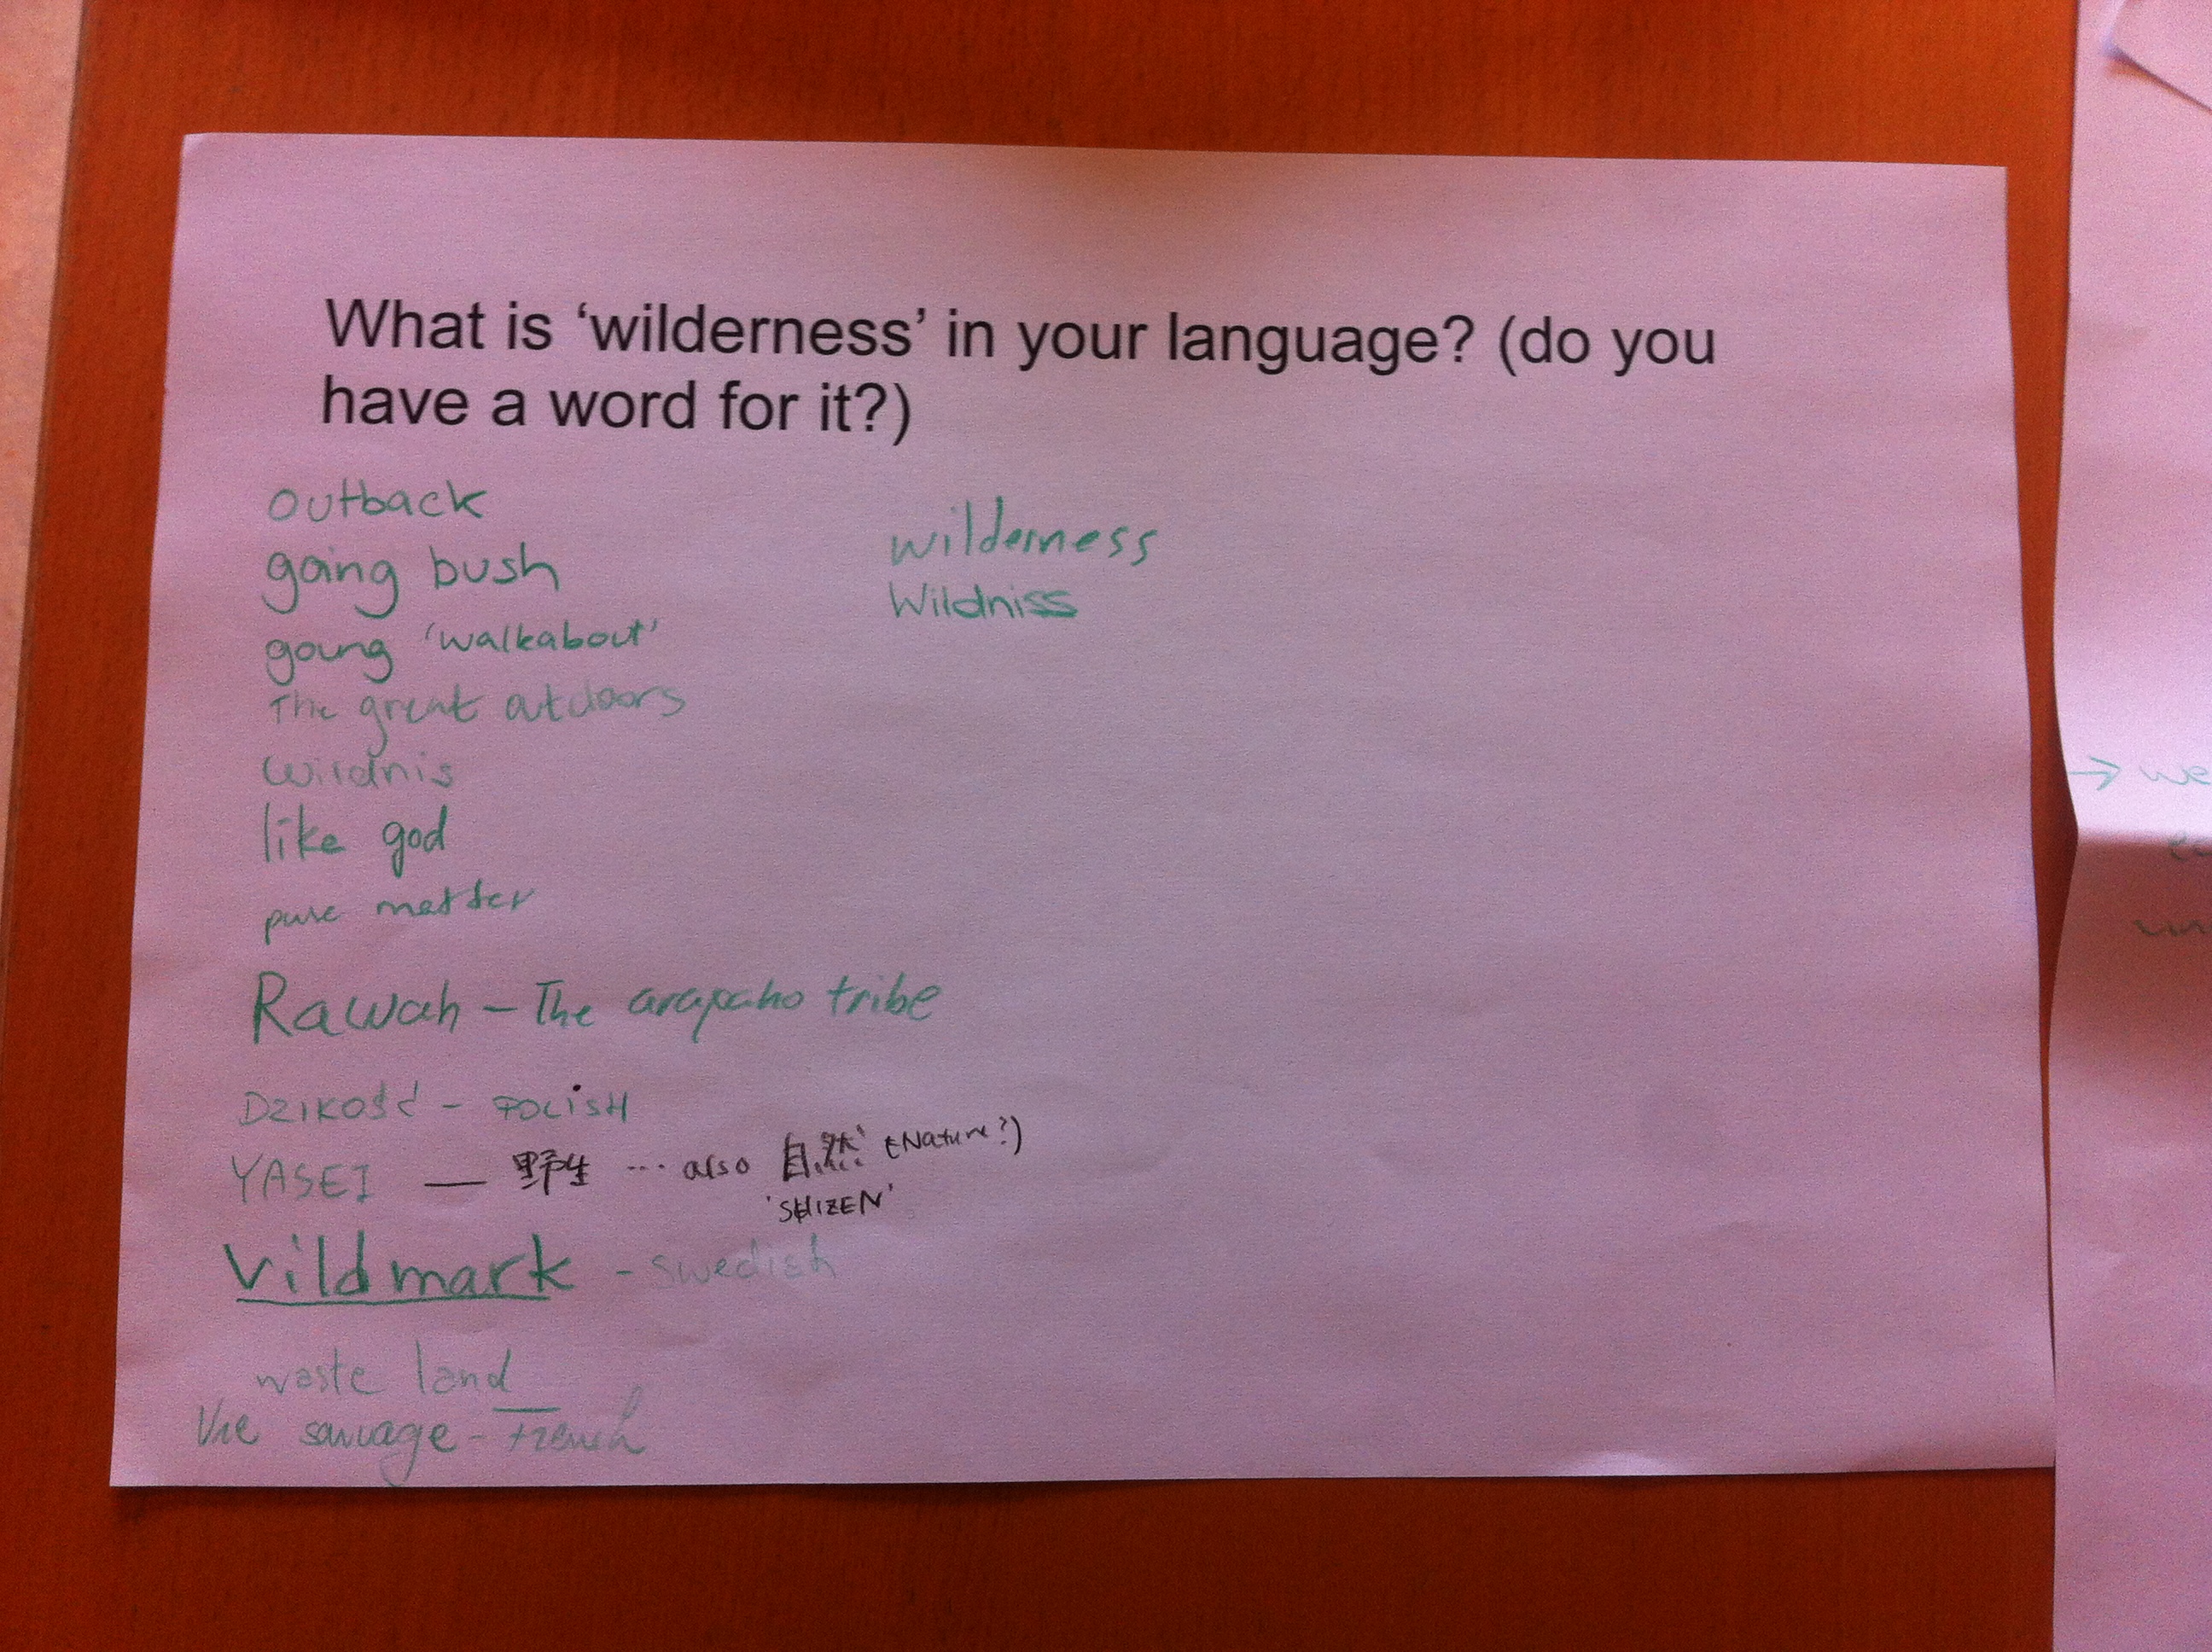 What is ‘wilderness’ in your language? (do you
have a word for it?)
outback
going bush
going ‘walkabout’
The great outdoors
Wildnis
like god
pure matter
Rawah – The arapaho tribe
DZIKOŚĆ – POLISH
YASEI — 野生 ... also 自然 (Nature?)
'SHIZEN'
Vildmark – swedish
waste land
Vie sauvage – French
wilderness
Wildniss
→ we